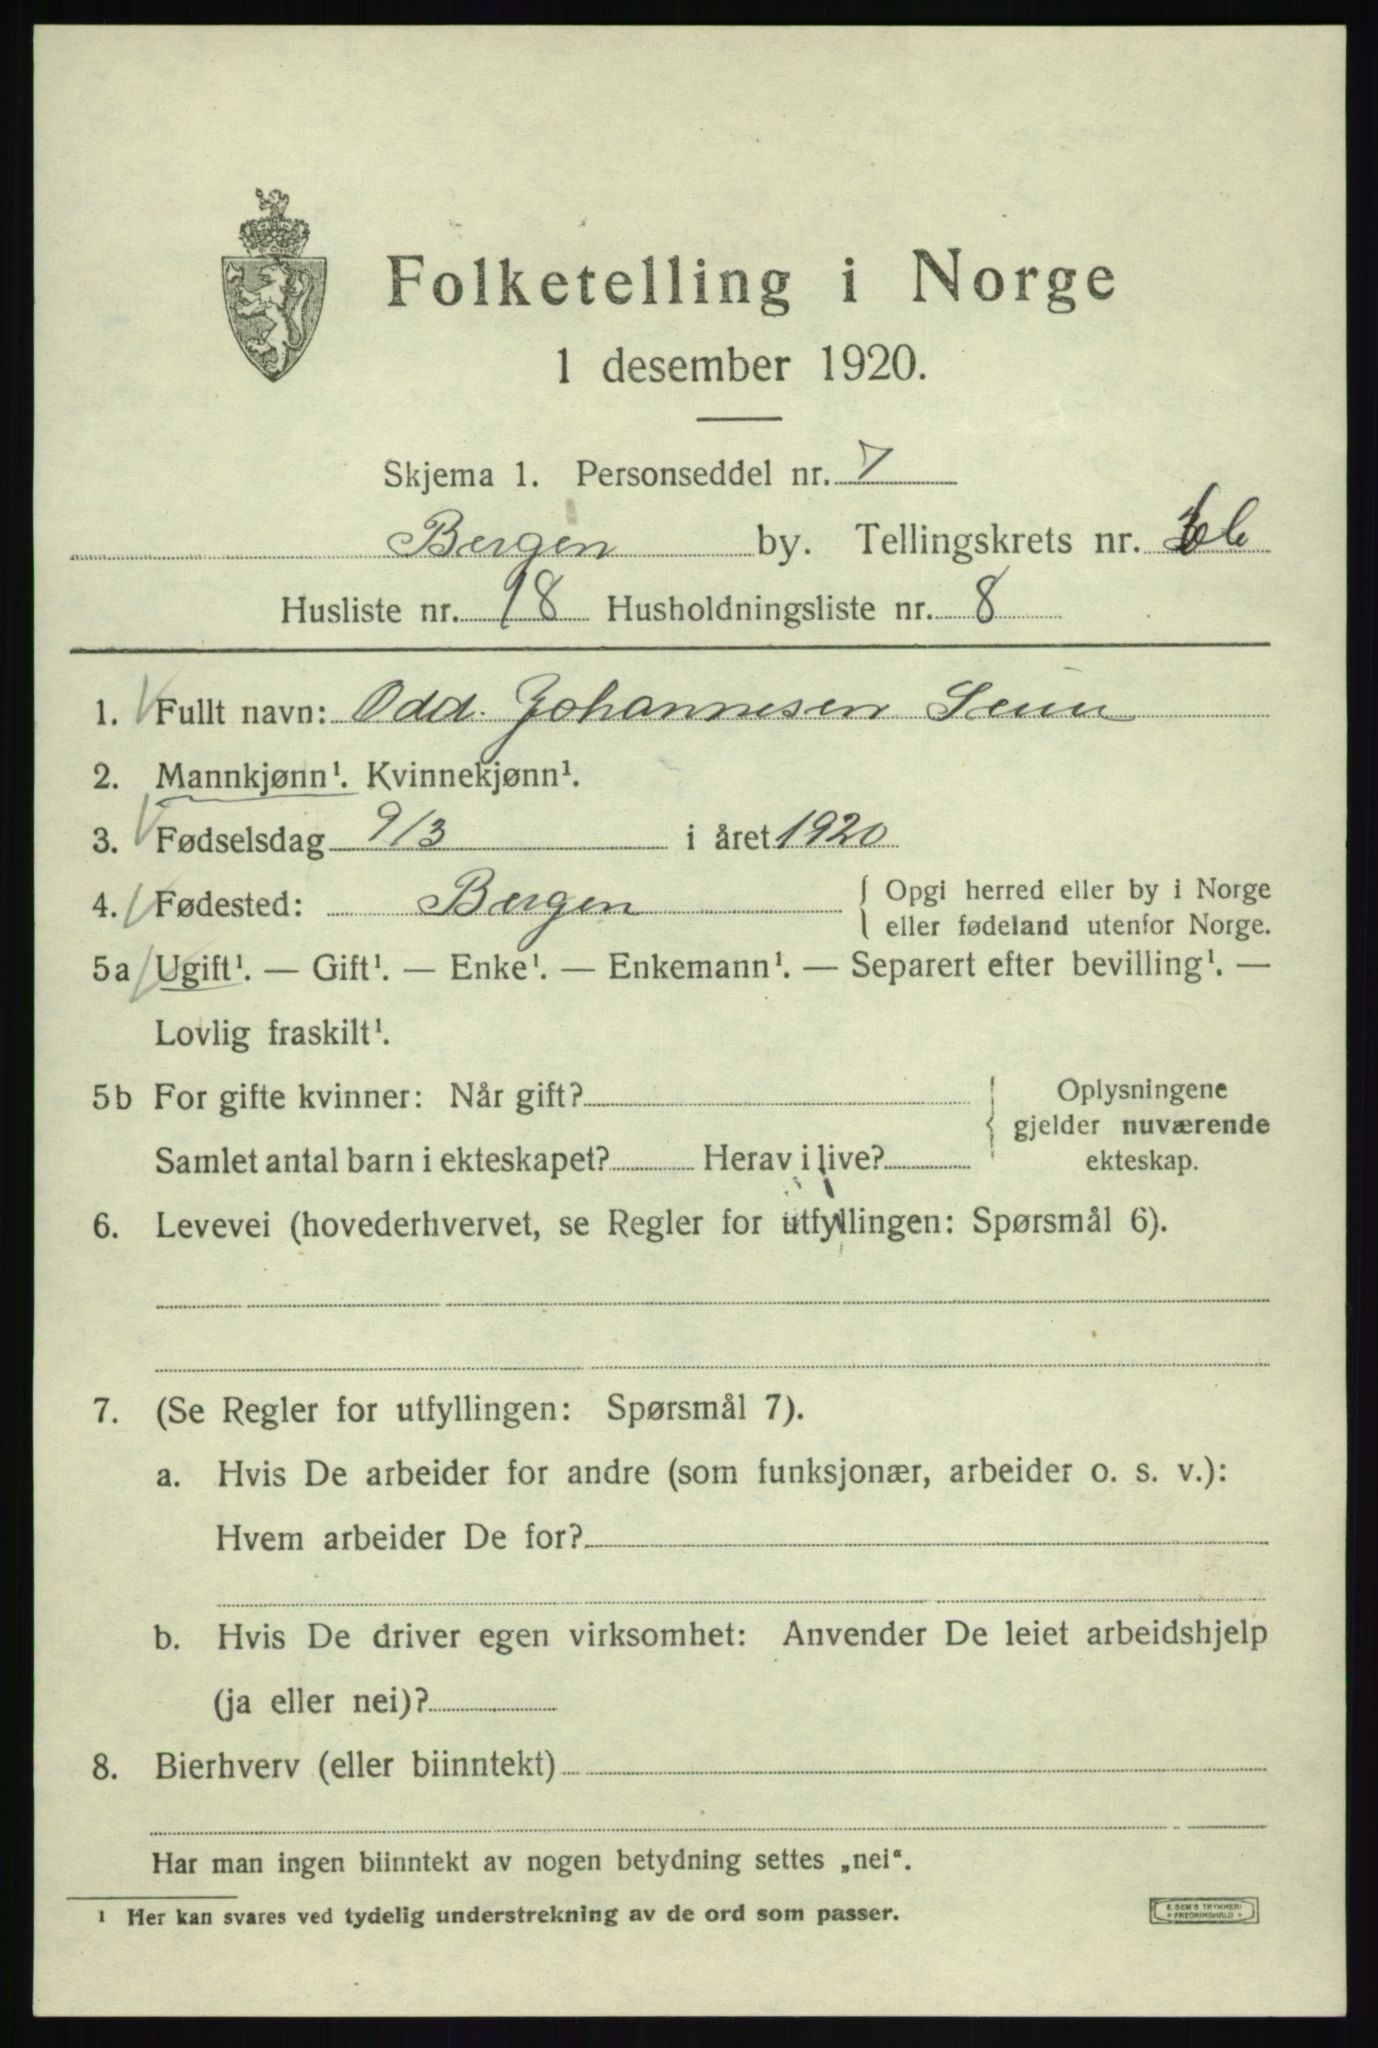 Folketelling i Norge
1 desember 1920.
Skjema 1. Personseddel nr. 7
Bergen by. Tellingskrets nr.
Husliste nr. 18 Husholdningsliste nr. 8
1. Fullt navn: Odd Johannesen
2. Mannkjønn¹. Kvinnekjønn¹.
3. Fødselsdag 9/3 i året 1920
4. Fødested: Bergen { Opgi herred eller by i Norge
eller fødeland utenfor Norge.
5a Ugift¹. — Gift¹. — Enke¹. — Enkemann¹. — Separert efter bevilling¹. —
Lovlig fraskilt¹.
5b For gifte kvinner: Når gift?
Samlet antal barn i ekteskapet? Herav i live?
Oplysningene
gjelder nuværende
ekteskap.
6. Levevei (hovederhvervet, se Regler for utfyllingen: Spørsmål 6).
7. (Se Regler for utfyllingen: Spørsmål 7).
a. Hvis De arbeider for andre (som funksjonær, arbeider o. s. v.):
Hvem arbeider De for?
b. Hvis De driver egen virksomhet: Anvender De leiet arbeidshjelp
(ja eller nei)?
8. Bierhverv (eller biinntekt)
Har man ingen biinntekt av nogen betydning settes „nei“.
¹ Her kan svares ved tydelig understrekning av de ord som passer.
E. SEM'S TRYKKERI
FREDRIKSHALD